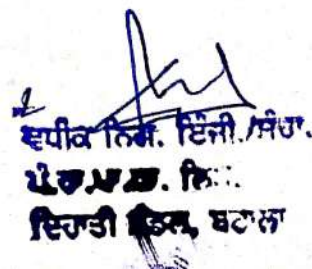 ਵਧੀਕ ਨਿਗ. ਇੰਜੀ./ਸੰਚਾ.
ਪੰ.ਰਾ.ਪਾ.ਕਾ. ਲਿਮ.
ਦਿਹਾਤੀ ਮੰਡਲ, ਬਟਾਲਾ